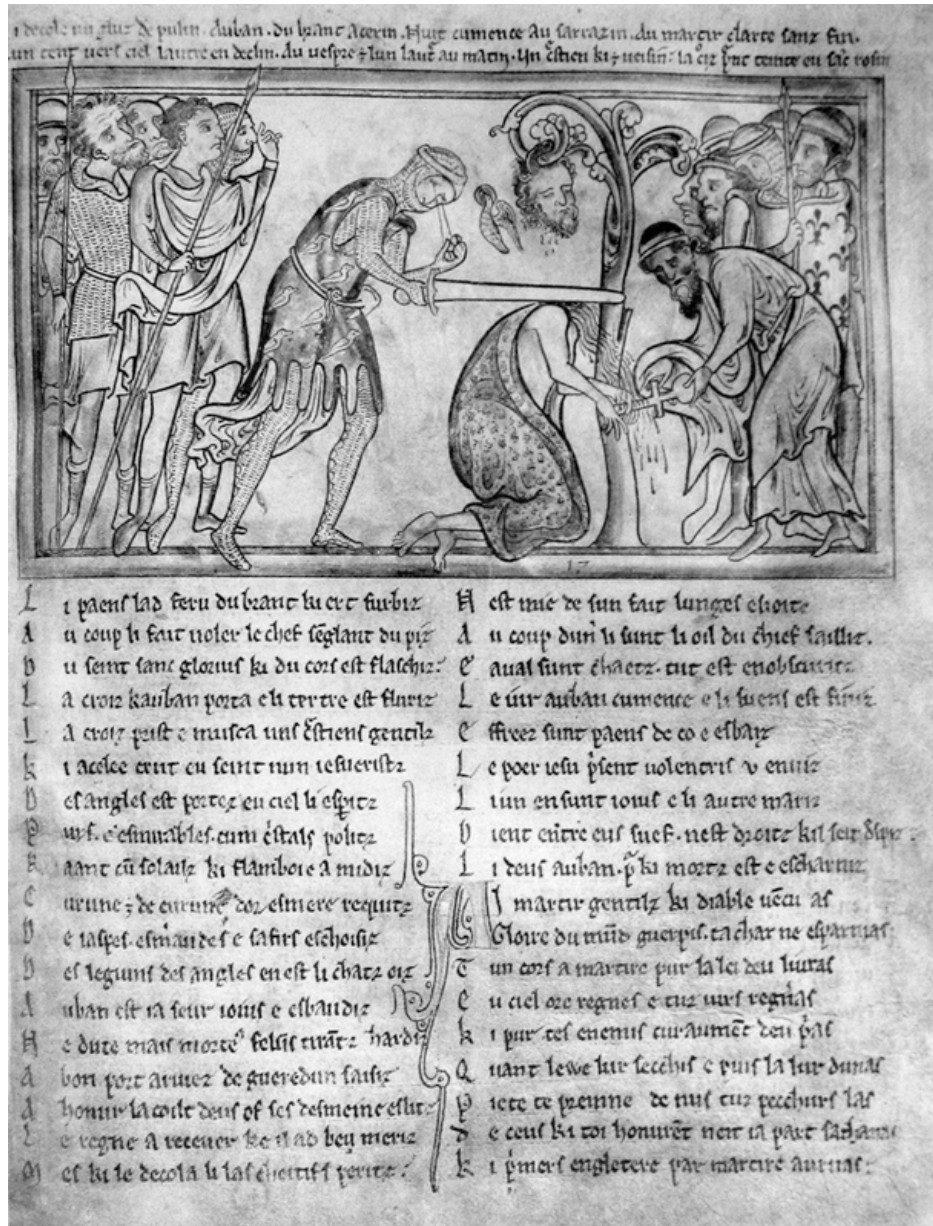 i decole un gluz de pulin. Auban. du brant acerin. Nuit cumence au sarrazin. du martir clarte sanz fin.
un tent vers ciel lautre en declin. Au vespre lun laut au matin. Un cstien ki veisin: la croiz prist teinte en sanc rosin
17
L i paens lad feru du brant ki ert furbiz
A u coup li fait voler le chef senglant du piz
D u seint sanc glorius ki du cors est flaschiz.
L a croiz kauban porta e li tertre est fluriz
L a croiz prist e musca uns cstiens gentilz
K i acolee crut en seint nun iesucristz
D es angles est portez en ciel li espritz
P urs. e esmirables. cum cristals politz
K aant cum solailz ki flamboie a midiz
C urune de curune dor esmere requitz
D e iaspes. esmaudes e safirs eschoisiz
D es legiuns des angles en est li chantz oiz
A uban est ia seur ioius e esbaudiz
N e dute mais morteus felsis tirantz hardiz
A bon port arivez de gueredun saisiz
A honur la coilt deus of ses desmeine esliz
L e regne a recever ke il ad ben meriz
M es ki le decola li las cheitifs peritz:
N est mie de sun fait lunges esioiz
A u coup dunt li sunt li oil du chief sailliz.
E aval sunt chaetz. tut est enobscuriz
L e iur auban cumence e li suens est finiz
E ffreez sunt paens de co e esbaiz
L e poer iesu present volentris u enviz
L i un en sunt ioius e li autre mariz
D ient entre eus suef. nest droitz kil seit despiz
L i deus auban. pur ki mortz est e escharniz
A I martir gentilz ki diable vencu as
Gloire du mund guerpis. ta char ne esparnias
T un cors a martire pur la lei deu livras
E u ciel ore regnes e tuz iurs regneras
K i pur tes enemis curaument deu prias
Q uant lewe lur secchis e puis la lur dunas
P iete te preinne de nus tuz pecchurs las
D e ceus ki toi honurent neit ia part sathanas
K i primers engletere par martire aurnas: